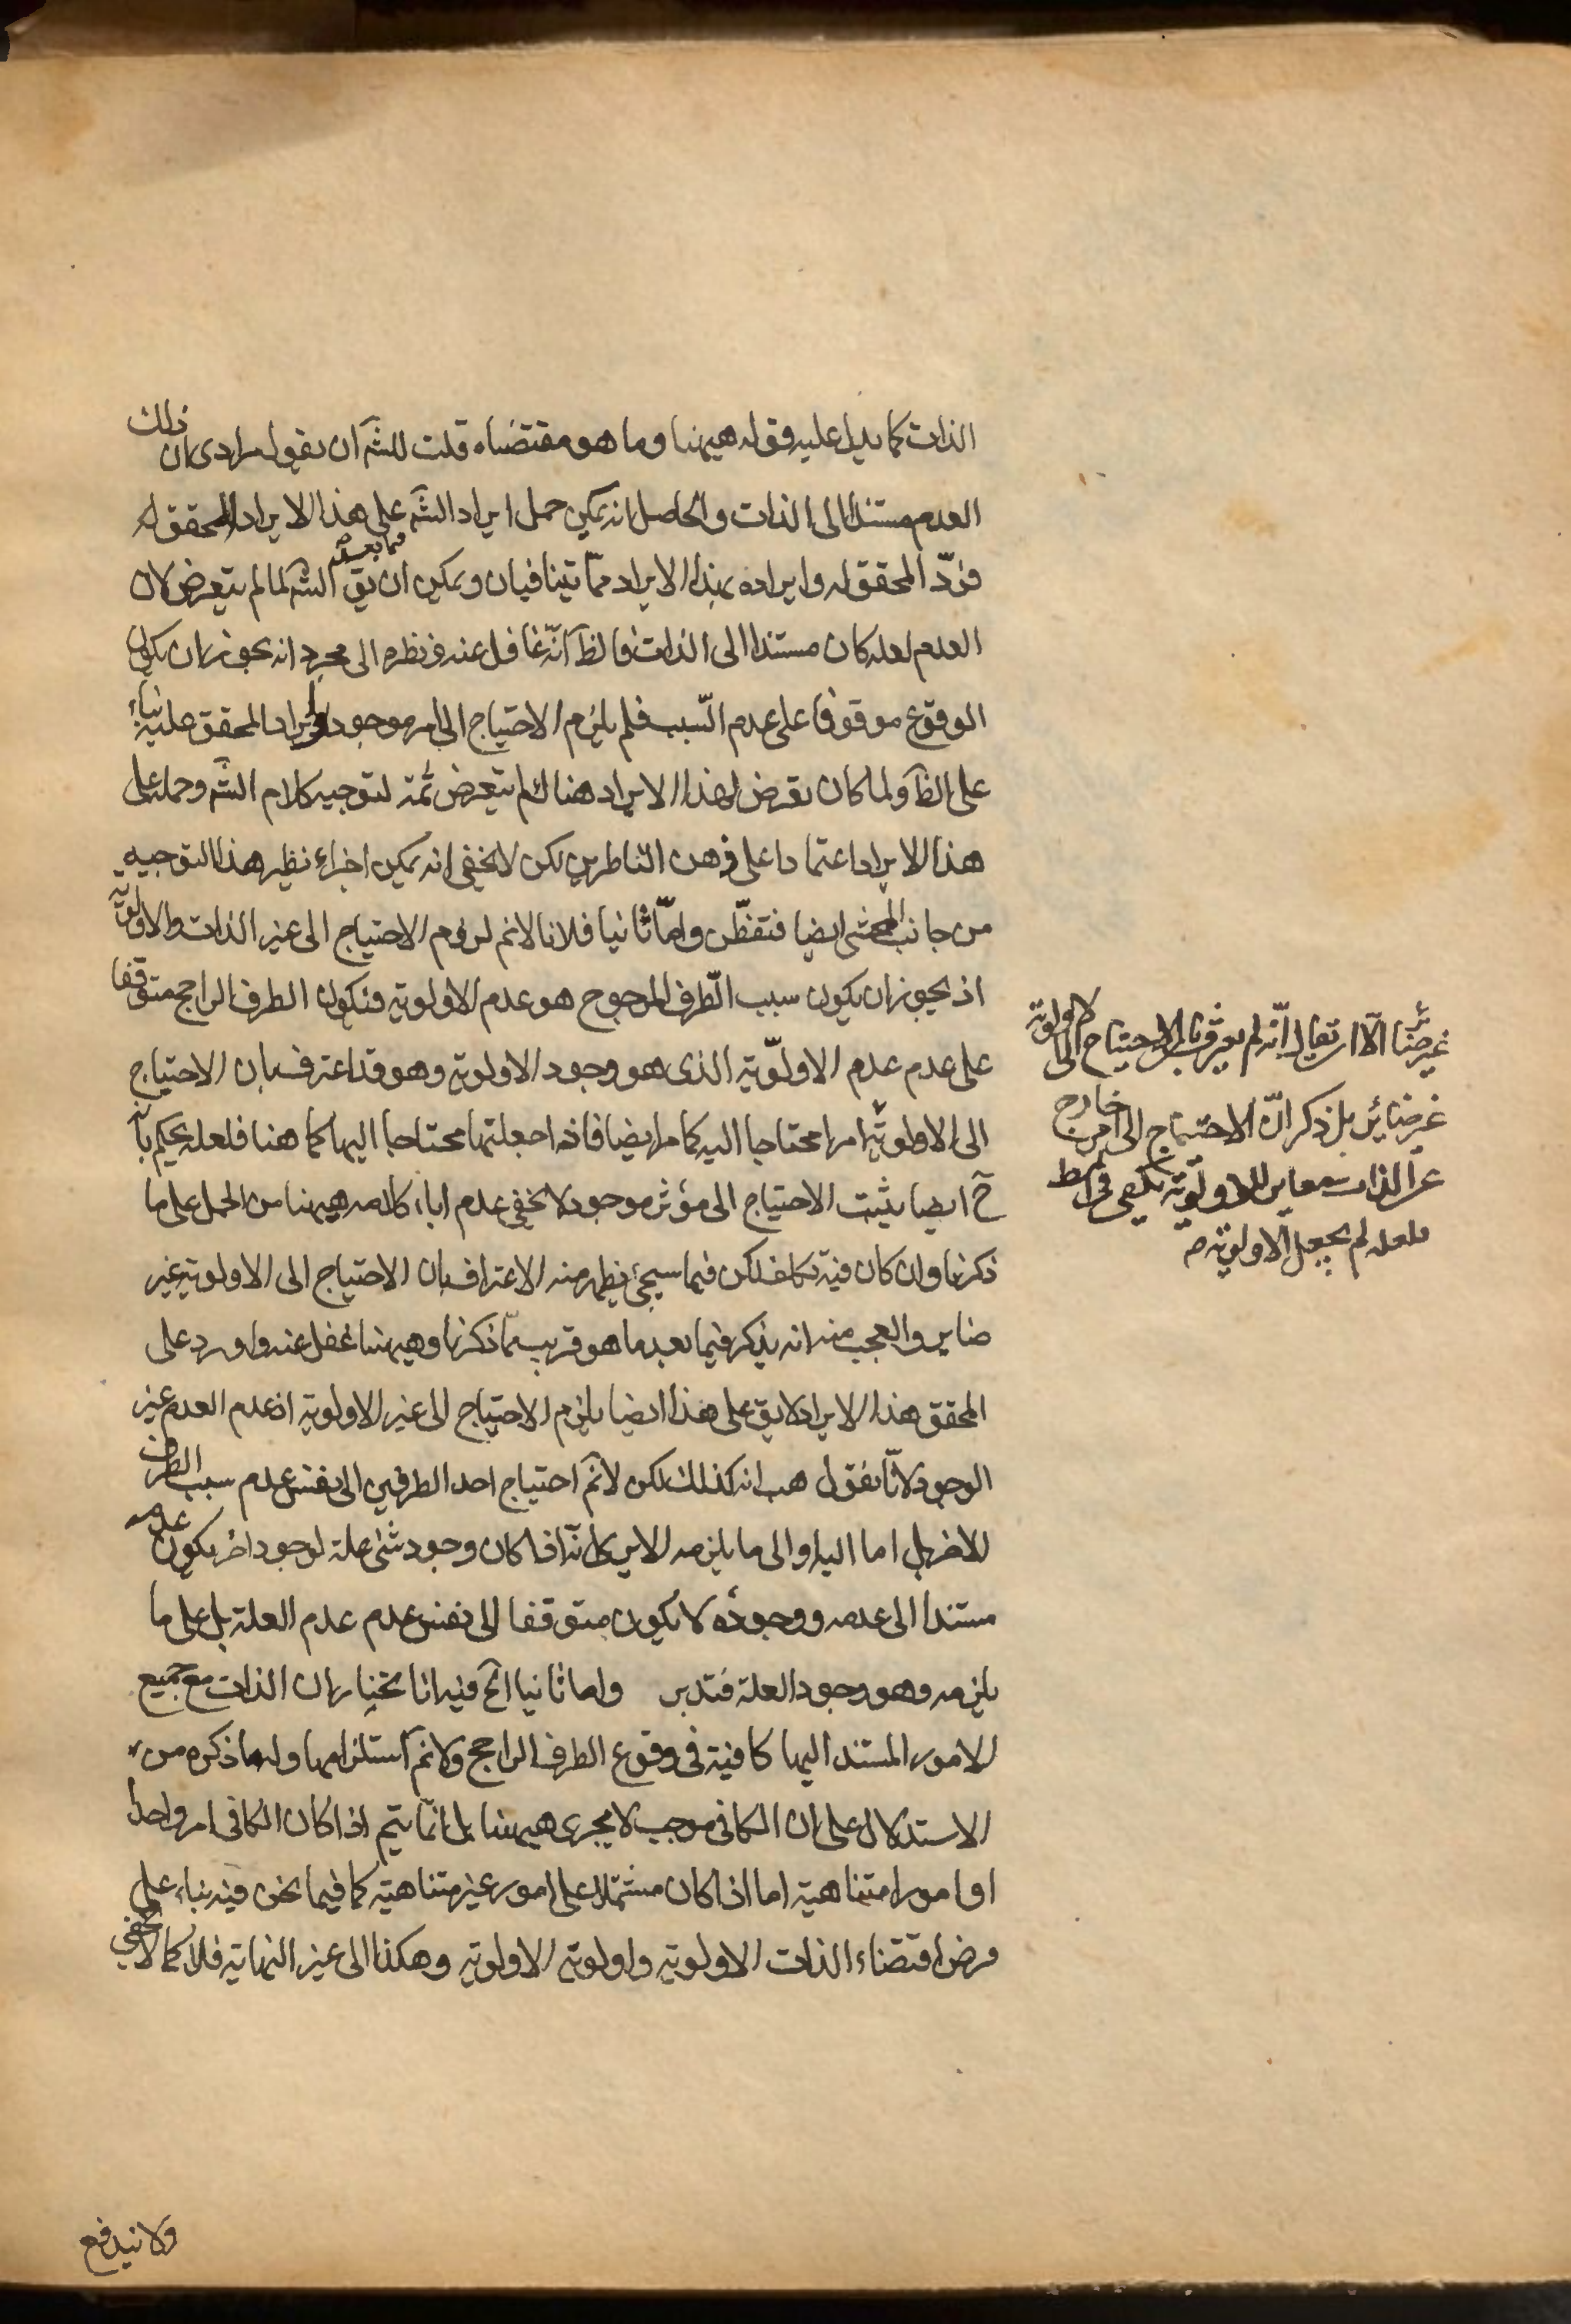 الذات كما يدل عليه قوله هيهنا وما هو مقتضاه قلت للشه ان يقول مرادى ان ذلك
العدم مستندا الى الذات والحاصل انه يمكن حمل ايراد الشه على هذا الايراد المحقق له
فردّ المحقق له وايراده بهذا الايراد ممّا يتنافيان ويمكن ان يق الشه لما لم يتعرض لان
العدم لعله كان مستندا الى الذات فالظ انّه غافل عنه ونظره الى مجرد انه يجوز ان يكون
الوقوع موقوفا على عدم السّبب فلم يلزم الاحتياج الى امر موجود وايراد المحقق عليه بناء
على الظ ولما كان تعرض لهذا الايراد هناك لم يتعرض ثمة لتوجيه كلام الشه وحمله على
هذا الايراد اعتمادا على ذهن الناظرين لكن لا يخفى انه يمكن اجراء نظير هذا التوجيه
من جانب المحشى ايضا فتفطّن وامّا ثانيا فلانا لانم لزوم الاحتياج الى غير الذات والاولوية
اذ يجوز ان يكون سبب الطّرف المرجوح هو عدم الاولوية فيكون الطرف الراجح متوقفا
على عدم عدم الاولوّية الذى هو وجود الاولوية وهو قد اعترف بان الاحتياج
الى الاولوية امرا محتاجا اليه كما مر ايضا فاذا جعلتها محتاجا اليها كما هنا فلعله يحكم بانّه
ح ايضا يثبت الاحتياج الى مؤثر موجود ولا يخفى عدم اباء كلامه هيهنا من الحمل على ما
ذكرنا وان كان فيه تكلف لكن فيما سيجئ يظهر منه الاعتراف بان الاحتياج الى الاولوية غير
ضاير والعجب منه انه يذكر فيما بعد ما هو قريب ممّا ذكرنا وهيهنا غفل عنه واورد على
المحقق هذا الايراد لا يق على هذا ايضا يلزم الاحتياج الى غير الاولوية اذ عدم العدم غير
الوجود لانّا نقول هب انه كذلك لكن لانم احتياج احد الطرفين الى نفس عدم سبب الطرف
للاخر بل اما اليه او الى ما يلزمه الا يرى انّه اذا كان وجود شئ علة لوجود اخر يكون عدمه
مستندا الى عدمه ووجوده لا يكون متوقفا الى نفس عدم عدم العلة بل على ما
يلزمه وهو وجود العلة فتدبر واما ثانيا الخ فيه انا نختار ان الذات مع جميع
الامور المستند اليها كافية فى وقوع الطرف الراجح ولانم استلزامها وله ما ذكره من
الاستدلال على ان الكافى موجب لا يجرى هيهنا بل انّما يتم اذا كان الكافى امر واحدا
او امورا متناهية اما اذا كان مشتملا على امور غير متناهية كما فيما نحن فيه بناء على
فرض اقتضاء الذات الاولوية واولوية الاولوية وهكذا الى غير النهاية فلا كما لا يخفى
غير ضائر الّا ان يقال انّه لم يعترف بان الاحتياج الى الاولوية
غير ضائر بل ذكر انّ الاحتياج الى امر خارج
عن الذات
فلعله لم يجعل الاولوية
ولا يندفع